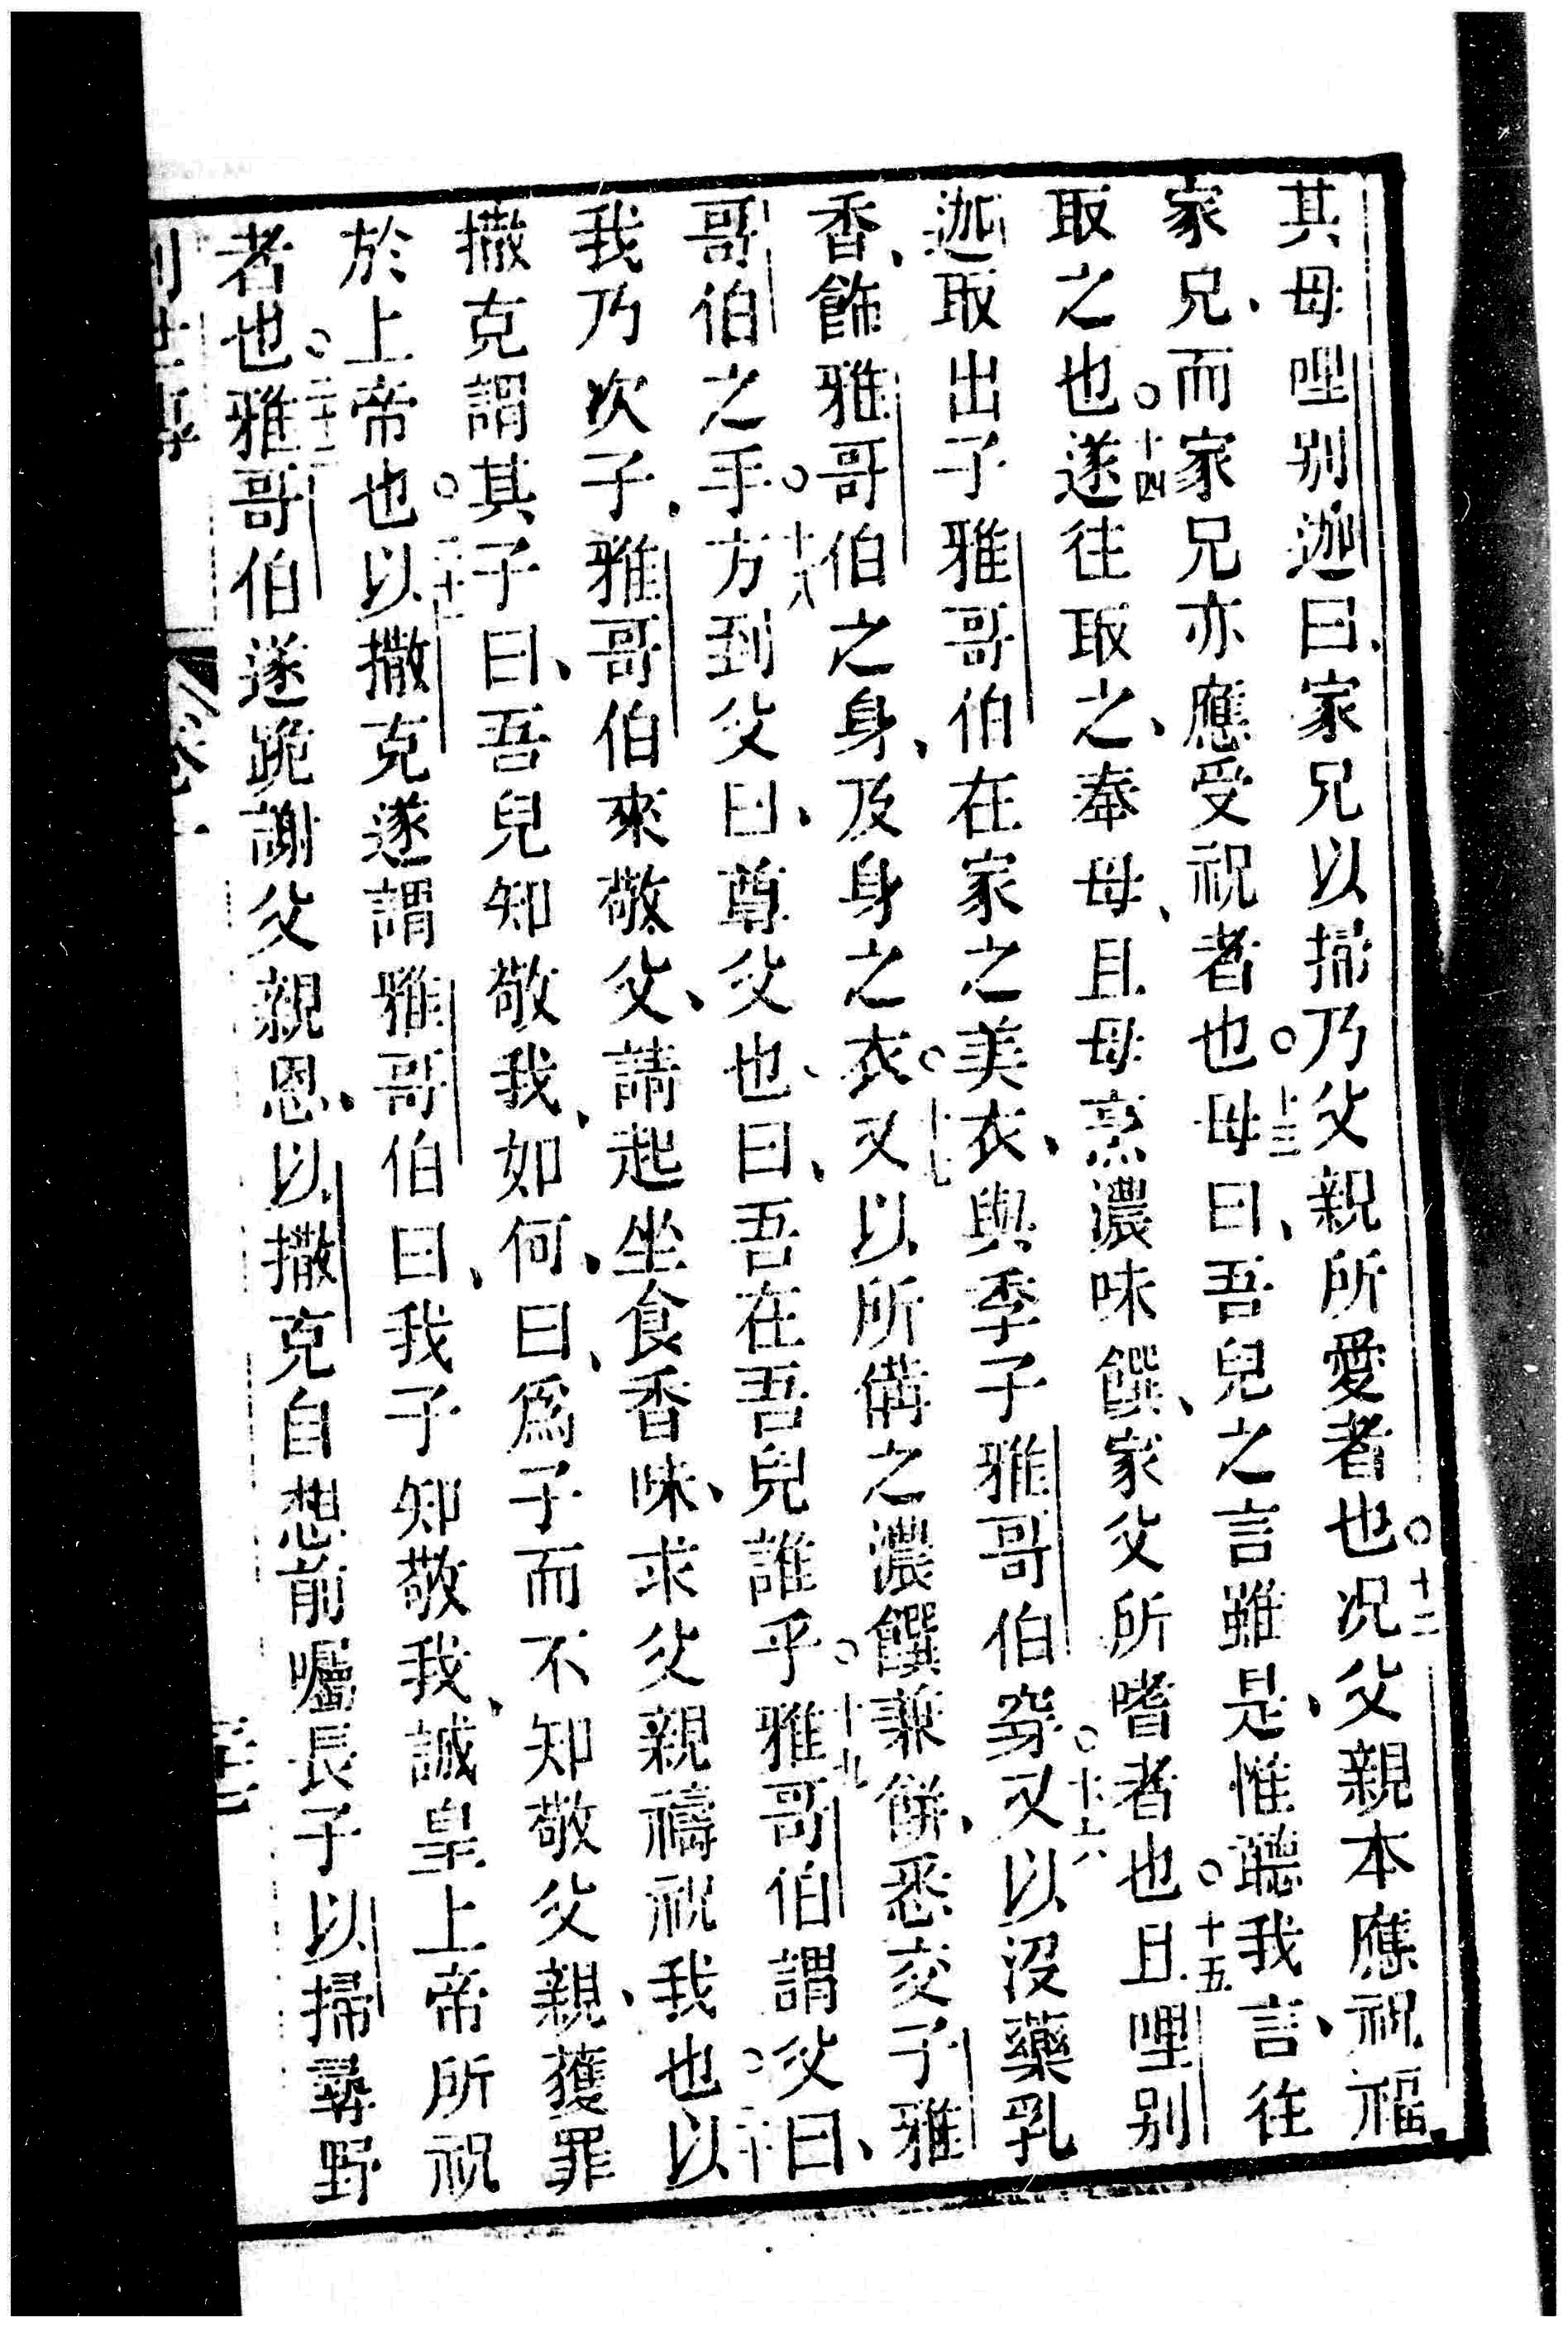 其母哩别迦曰、家兄以掃乃父親所愛者也○十二况父親本應祝福
家兄、而家兄亦應受祝者也○十三母曰、吾兒之言雖是、惟聽我言、往
取之也○十四遂往取之、奉母、且母烹濃味饌、家父所嗜者也○十五且哩别
迦取出子雅哥伯在家之美衣、與季子雅哥伯穿○十六又以沒藥乳
香、飾雅哥伯之身、及身之衣○十七又以所備之濃饌兼餅、悉交子雅
哥伯之手○十八方到父曰、尊父也、曰、吾在吾兒誰乎○十九雅哥伯謂父曰、
我乃次子、雅哥伯來敬父、請起坐食香味、求父親禱祝我也○二十以
撒克謂其子曰、吾兒知敬我、如何、曰、爲子而不知敬父親、獲罪
於上帝也○二十一以撒克遂謂雅哥伯曰、我子知敬我、誠皇上帝所祝
者也○二十二雅哥伯遂跪謝父親恩、以撒克自想前囑長子以掃尋野